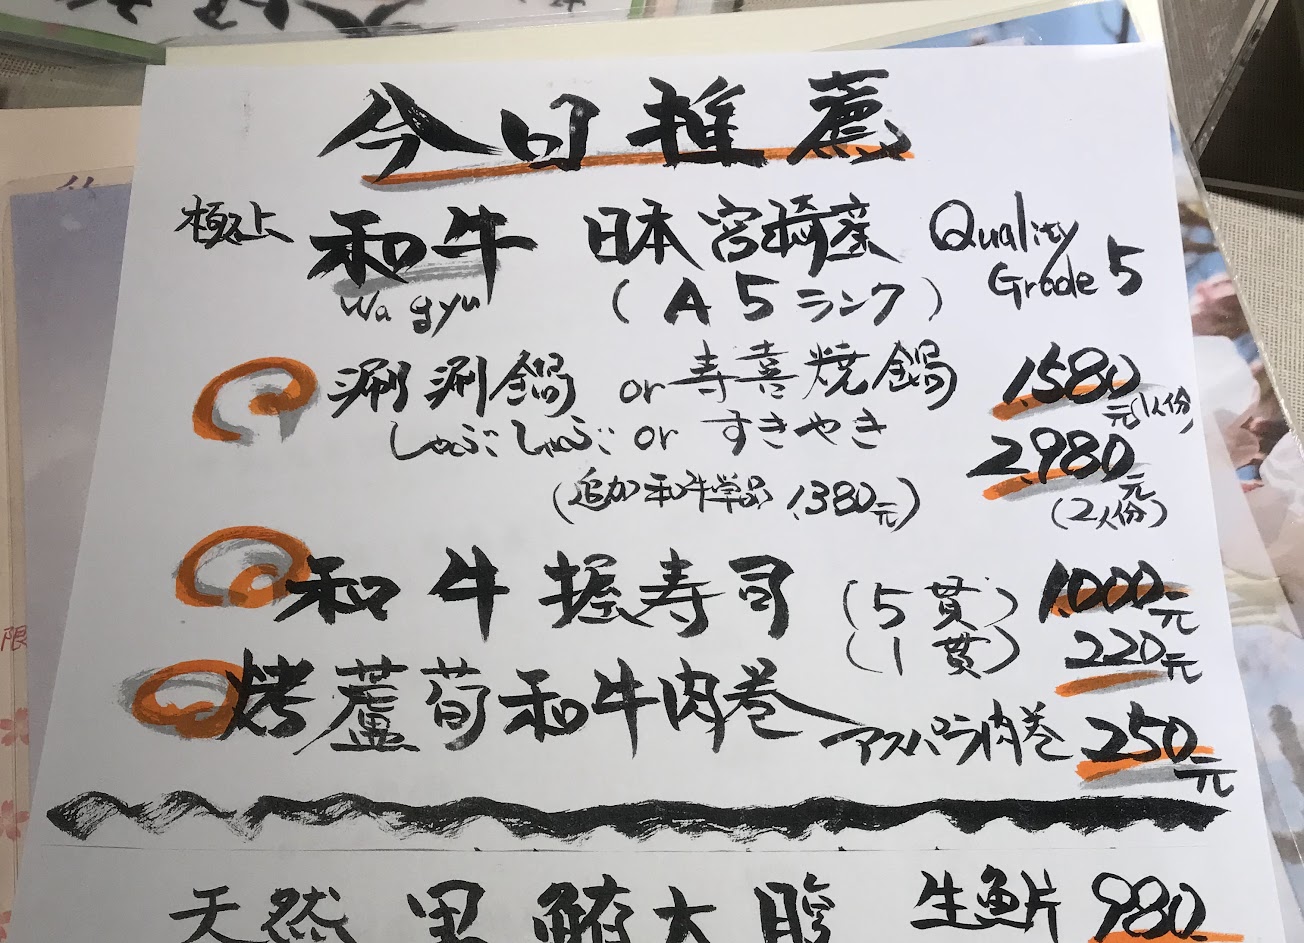 今日推薦
極上 和牛 日本宮崎産 Quality
Wa gyu (A5ランク) Grade 5
涮涮鍋 or 寿喜焼鍋 1,580元(1人份)
しゃぶしゃぶ or すきやき 2,980元
(追加和牛単品 1,380元) (2人份)
和牛握寿司 (5貫) 1,000元
(1貫) 220元
烤蘆筍和牛肉巻 アスパラ肉巻 250元
天然黒鮪大腹 生魚片 980
限